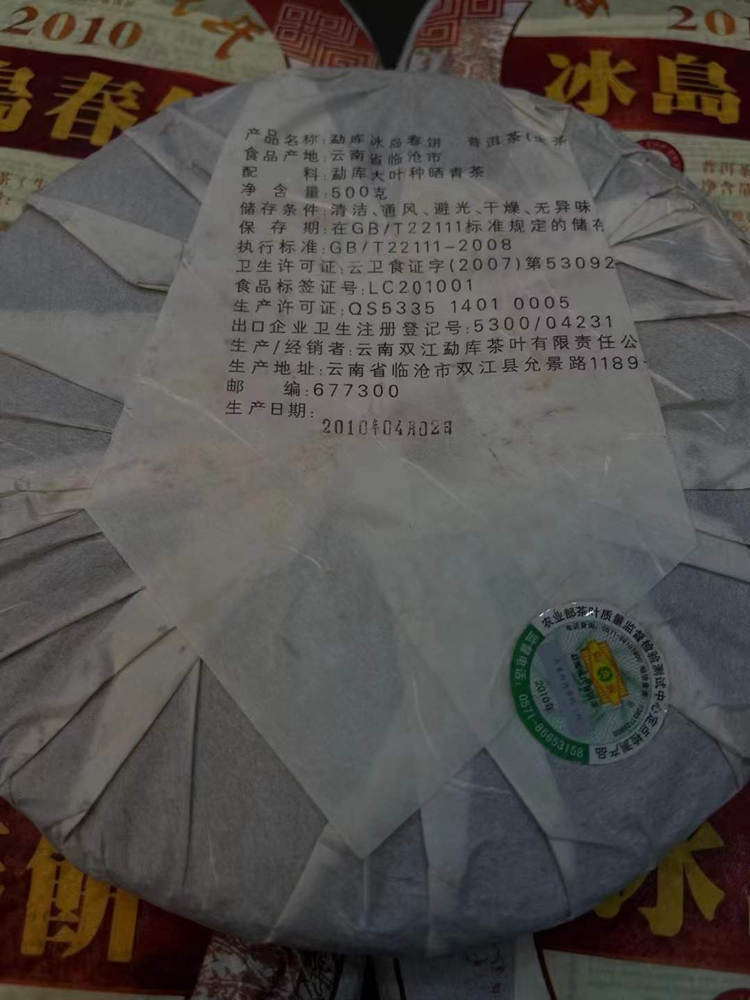 2010
20
岛春
冰岛
产品名称:勐库冰岛春饼 普洱茶(生茶
食品产地:云南省临沧市
配 料:勐库大叶种晒青茶
净 含 量:500克
储存条件:清洁、通风、避光、干燥、无异味
保 存 期:在GB/T22111标准规定的储存
执行标准:GB/T22111-2008
卫生许可证:云卫食证字(2007)第53092
食品标签证号:LC201001
生产许可证:QS5335 1401 0005
出口企业卫生注册登记号:5300/04231
生产/经销者:云南双江勐库茶叶有限责任公
生产地址:云南省临沧市双江县允景路1189
邮 编:677300
生产日期:
2010年04月02日
农业部茶叶质量监督检验测试中心定点检测产品
监督电话:0571-86653158
2010年
饼
冰